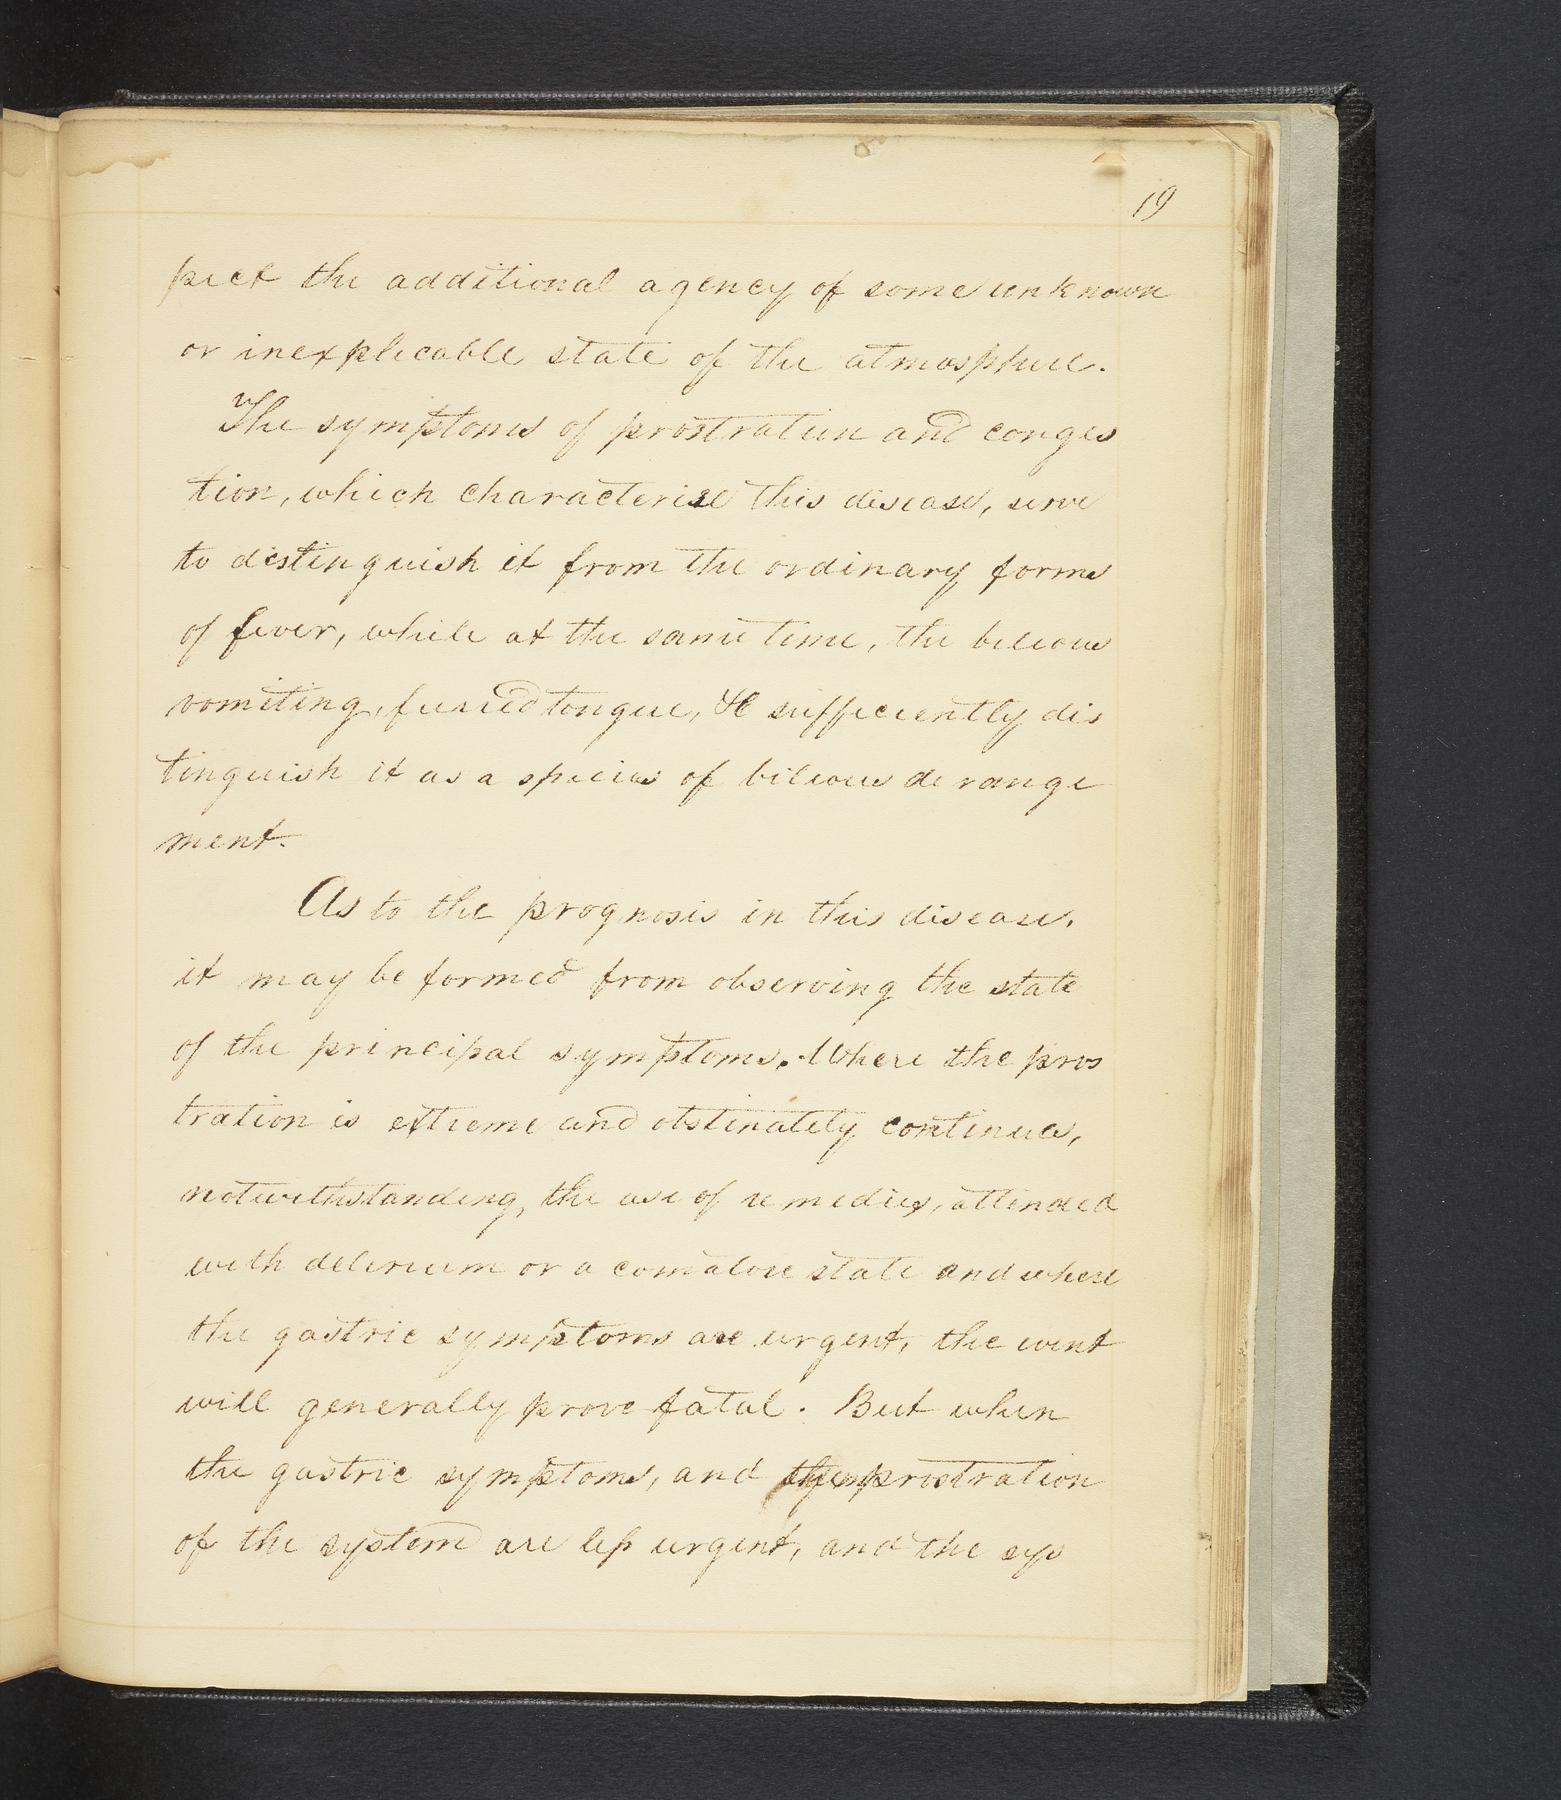 19
pect the additional agency of some unknown
or inexplicable state of the atmosphere.
The symptoms of prostration and conges
tion, which characterise this disease, serve
to distinguish it from the ordinary forms
of fever, while at the same time, the bilious
vomiting, furred tongue, &c sufficiently dis
tinguish it as a species of bilious derange
ment.
As to the prognosis in this disease,
it may be formed from observing the state
of the principal symptoms. Where the pros
tration is extreme and obstinately continues,
notwithstanding, the use of remedies, attended
with delirium or a comatose state and where
the gastric symptoms are urgent, the event
will generally prove fatal. But when
the gastric symptoms, and prostration
of the system are less urgent, and the sys